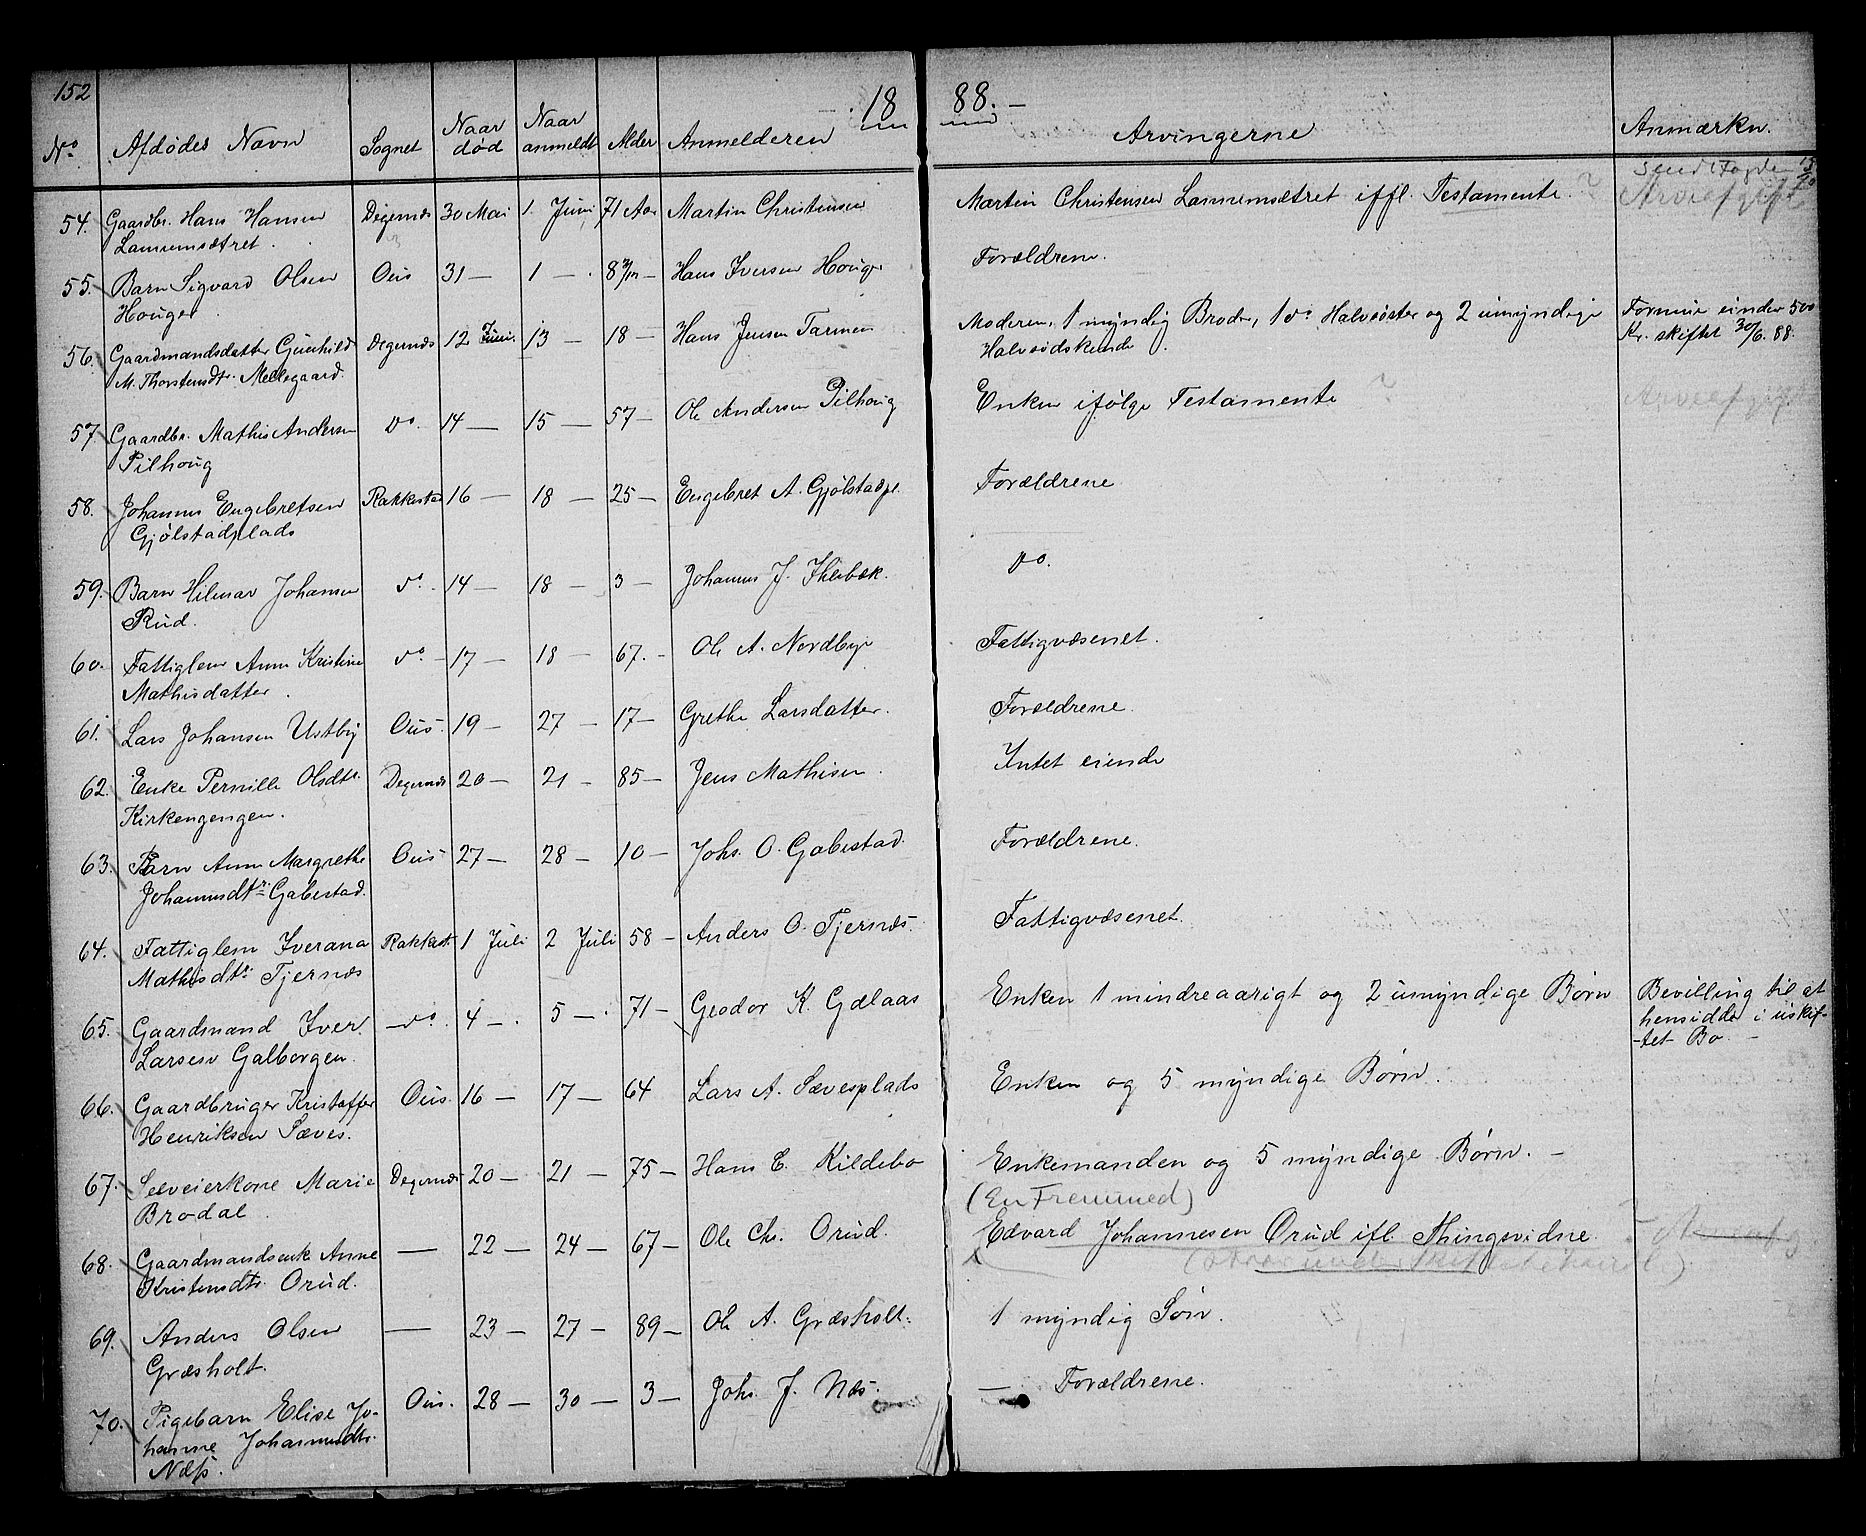 152
18 88. —
No. Afdødes Navn Sognet Naar død Naar anmeldt Alder Anmelderen Arvingerne Anmærkn.
54. Gaardbr. Hans Hansen Degernæs 30 Mai 1. Juni 71 Aar Martin Christensen Martin Christensen Lannemsætret iffl. Testamente. ?
Lannemsætret.
55. Barn Sigvard Olsen Ous 31 — 1 — Hans Iversen Houger Forældrene.
Houger
56. Gaardmandsdatter Gunhild Degernæs 12 Juni. 13 — 18 — Hans Jensen Tarmen Moderen, 1 myndig Broder, 1 do Halvsøster og 2 umyndige Formue under 500
M. Thorstensdtr. Melleggaard. Halvsødskende. Kr. skiftet 30/6. 88.
57. Gaardbr. Mathis Andersen do. 14 — 15 — 57 — Ole Andersen Pilhoug Enken ifølge Testamente ?
Pilhoug
58. Johannes Engebretsen Rakkestad 16 — 18 — 25 — Engebret A. Gjølstadpl. Forældrene
Gjølstadplads
59. Barn Hilmar Johansen do. 14 — 18 — 3 — Johannes J. Khlbæk. do.
Rud.
60. Fattiglem Anne Kristine do — 17 — 18 — 67. — Ole A. Nordbye Fattigvæsenet.
Mathisdatter.
61. Lars Johansen Ustby Ous. 19 — 27 — 17 — Grethe Larsdatter. Forældrene.
62. Enke Pernille Olsdtr. Degernæs 20 — 21 — 85 — Jens Mathisen. Intet eiende
Kirkengengen.
63. Barn Anne Margrethe Ous 27 — 28 — 10 — Johs. O. Gabestad. Forældrene.
Johannesdtr. Gabestad.
64. Fattiglem Iverana Rakkest. 1 Juli 2 Juli 58 — Anders O. Tjernæs. Fattigvæsenet.
Mathisdtr. Tjernæs
65. Gaardmand Iver do. 4 — 5 — 71 — Geodor K. Gælaas Enken 1 mindreaarigt og 2 umyndige Børn Bevilling til at
Larsesv Galborgen. hensidde i uskif-
-tet Bo. —
66. Gaardbruger Kristoffer Ous. 16 — 17 — 64 Lars A. Sævesplads Enken og 5 myndige Børn.
Henriksen Sæves.
67. Selveierkone Marie Degernæs 20 — 21 — 75 — Hans E. Kildebo Enkemanden og 5 myndige Børn. —
Brodal
(En Fremmed)
68. Gaardmandsenke Anne — 22 — 24 — 67 — Ole Chr. Orud. Edvard Johannesen Orud ifl. Thingsvidne
Kristensdtr. Orud.
69. Anders Olsen — 23 — 27 — 89 — Ole A. Græsholt. 1 myndig Søn.
Græsholt.
70. Pigebarn Elise Jo- Ous. 28 — 30 — 3 — Johs. J. Næs. — Forældrene.
hanne Johannesdtr.
Næss.